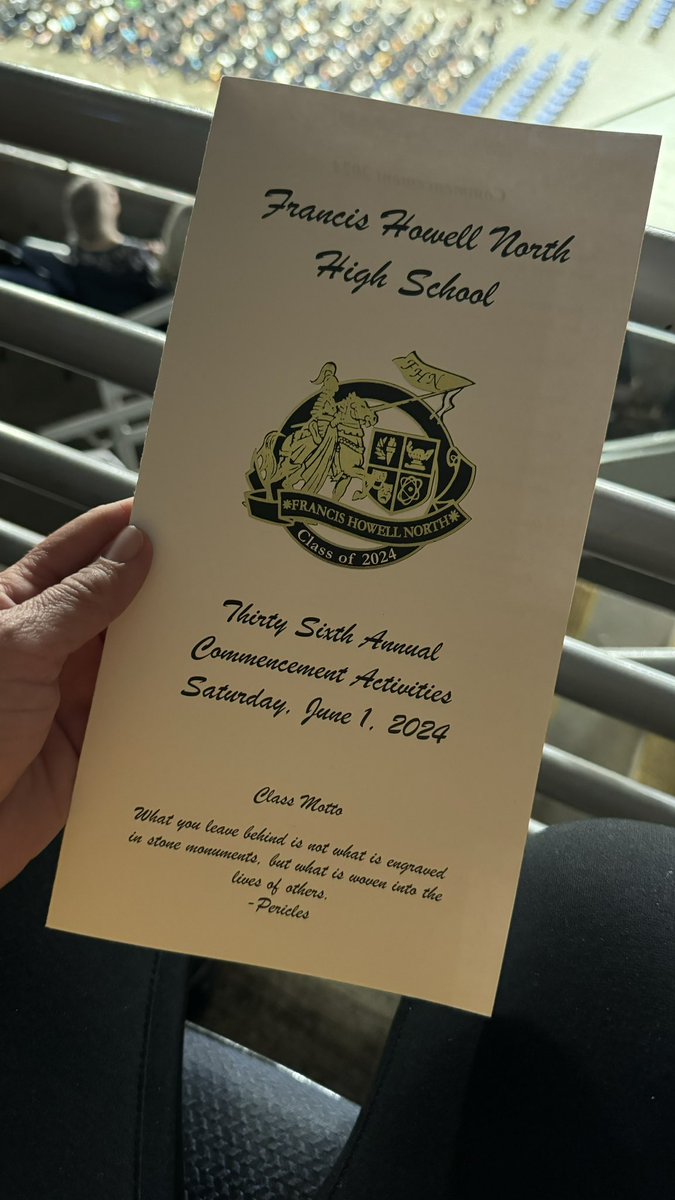 Francis Howell North
High School
FHN
FRANCIS HOWELL NORTH
Class of 2024
Thirty Sixth Annual
Commencement Activities
Saturday, June 1, 2024
Class Motto
What you leave behind is not what is engraved
in stone monuments, but what is woven into the
lives of others.
-Pericles